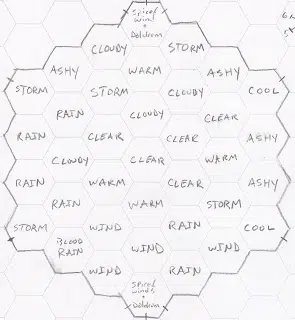 Spiced
wind
&
Doldrum
CLOUDY STORM
ASHY WARM ASHY
STORM STORM CLOUDY COOL
RAIN CLOUDY CLEAR
RAIN CLEAR CLEAR ASHY
CLOWDY CLEAR WARM
RAIN WARM CLEAR ASHY
RAIN WARM STORM
STORM WIND RAIN COOL
BLOOD
RAIN WIND WIND
WIND RAIN
Spiced
winds
&
Doldrum